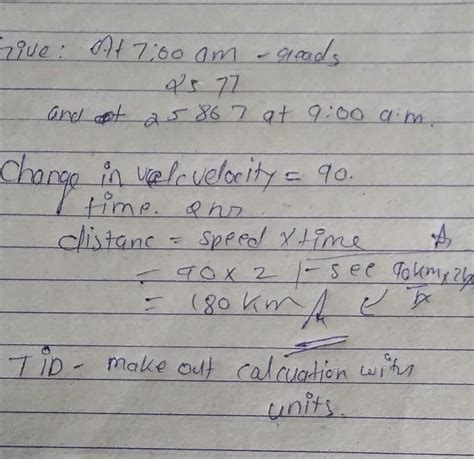 Give: At 7:00 am - reads
25 77
and at 25867 at 9:00 a.m.
Change in velocity = 90.
time. 2 hr
distanc = speed x time
= 90 x 2 - see 90km x 2
= 180 km
TiD - make out calcuation with
units.